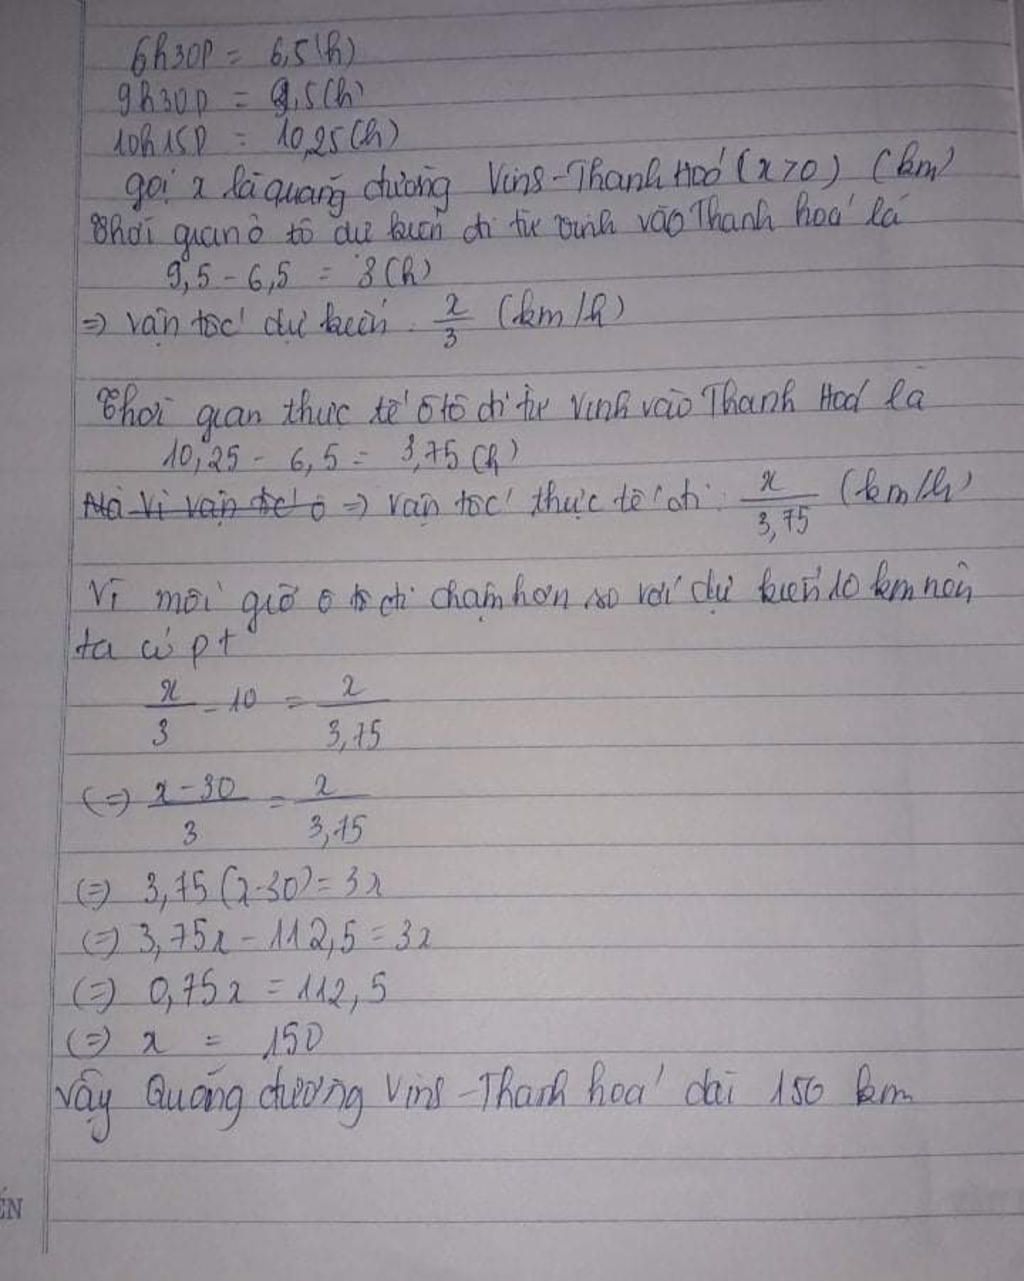 6h30p = 6,5(h)
9h30p = 9,5(h)
10h15p = 10,25(h)
gọi x là quãng đường Vins-Thanh Hoá (x>0) (km)
Thời gian ô tô dự kiến đi từ vinh vào Thanh hoá là
9,5 - 6,5 = 3(h)
=> vận tốc dự kiến : x/3 (km/h)
Thời gian thực tế ô tô đi từ Vinh vào Thanh Hoá là
10,25 - 6,5 = 3,75(h)
Mà vì vận tốc ô => vận tốc thực tế đi : x/3,75 (km/h)
Vì mỗi giờ ô tô đi chậm hơn so với dự kiến 10 km nên
ta có pt
x/3 - 10 = x/3,75
(=) x-30/3 = x/3,75
(=) 3,75(x-30) = 3x
(=) 3,75x - 112,5 = 3x
(=) 0,75x = 112,5
(=) x = 150
Vậy Quãng đường Vins-Thanh hoá dài 150 km
ÊN